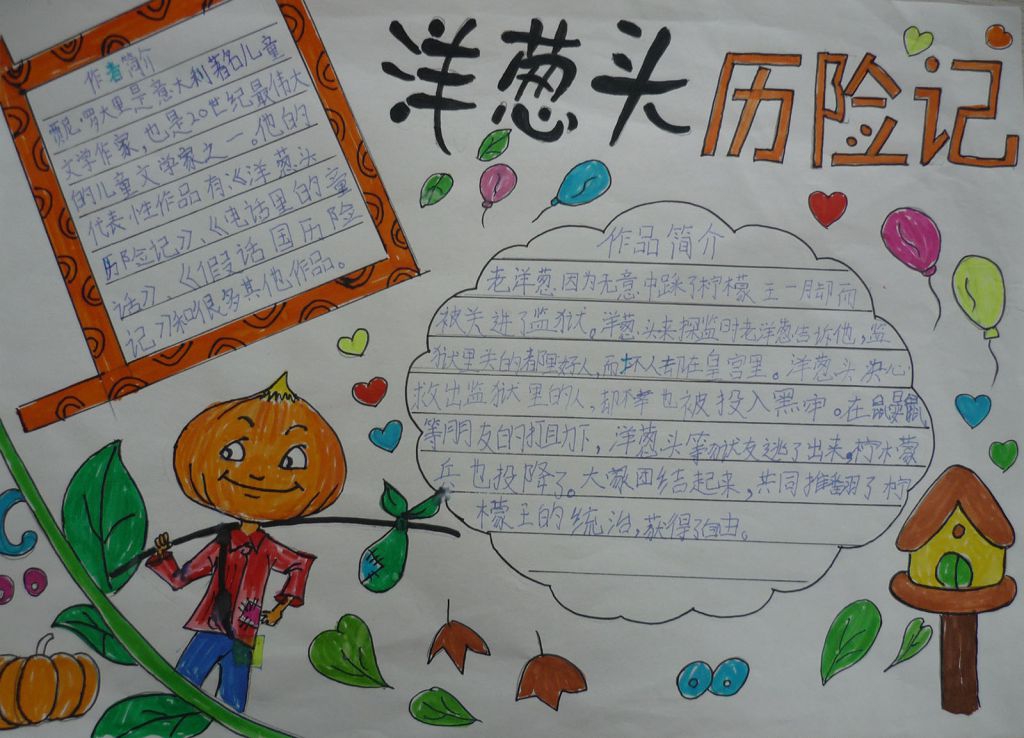 洋葱头历险记
作者简介
贾尼·罗大里是意大利著名儿童
文学作家,也是20世纪最伟大
的儿童文学家之一。他的
代表性作品有《洋葱头
历险记》、《电话里的童
话》、《假话国历险
记》和很多其他作品。
作品简介
老洋葱因为无意中踩了柠檬王一脚而
被关进了监狱。洋葱头来探监时老洋葱告诉他,监
狱里关的都是好人,而坏人却在皇宫里。洋葱头决心
救出监狱里的人,却不幸也被投入黑牢。在鼹鼠
等朋友的打助下,洋葱头等狱友逃了出来,柠檬
兵也投降了。大家团结起来,共同推翻了柠
檬王的统治,获得了自由。